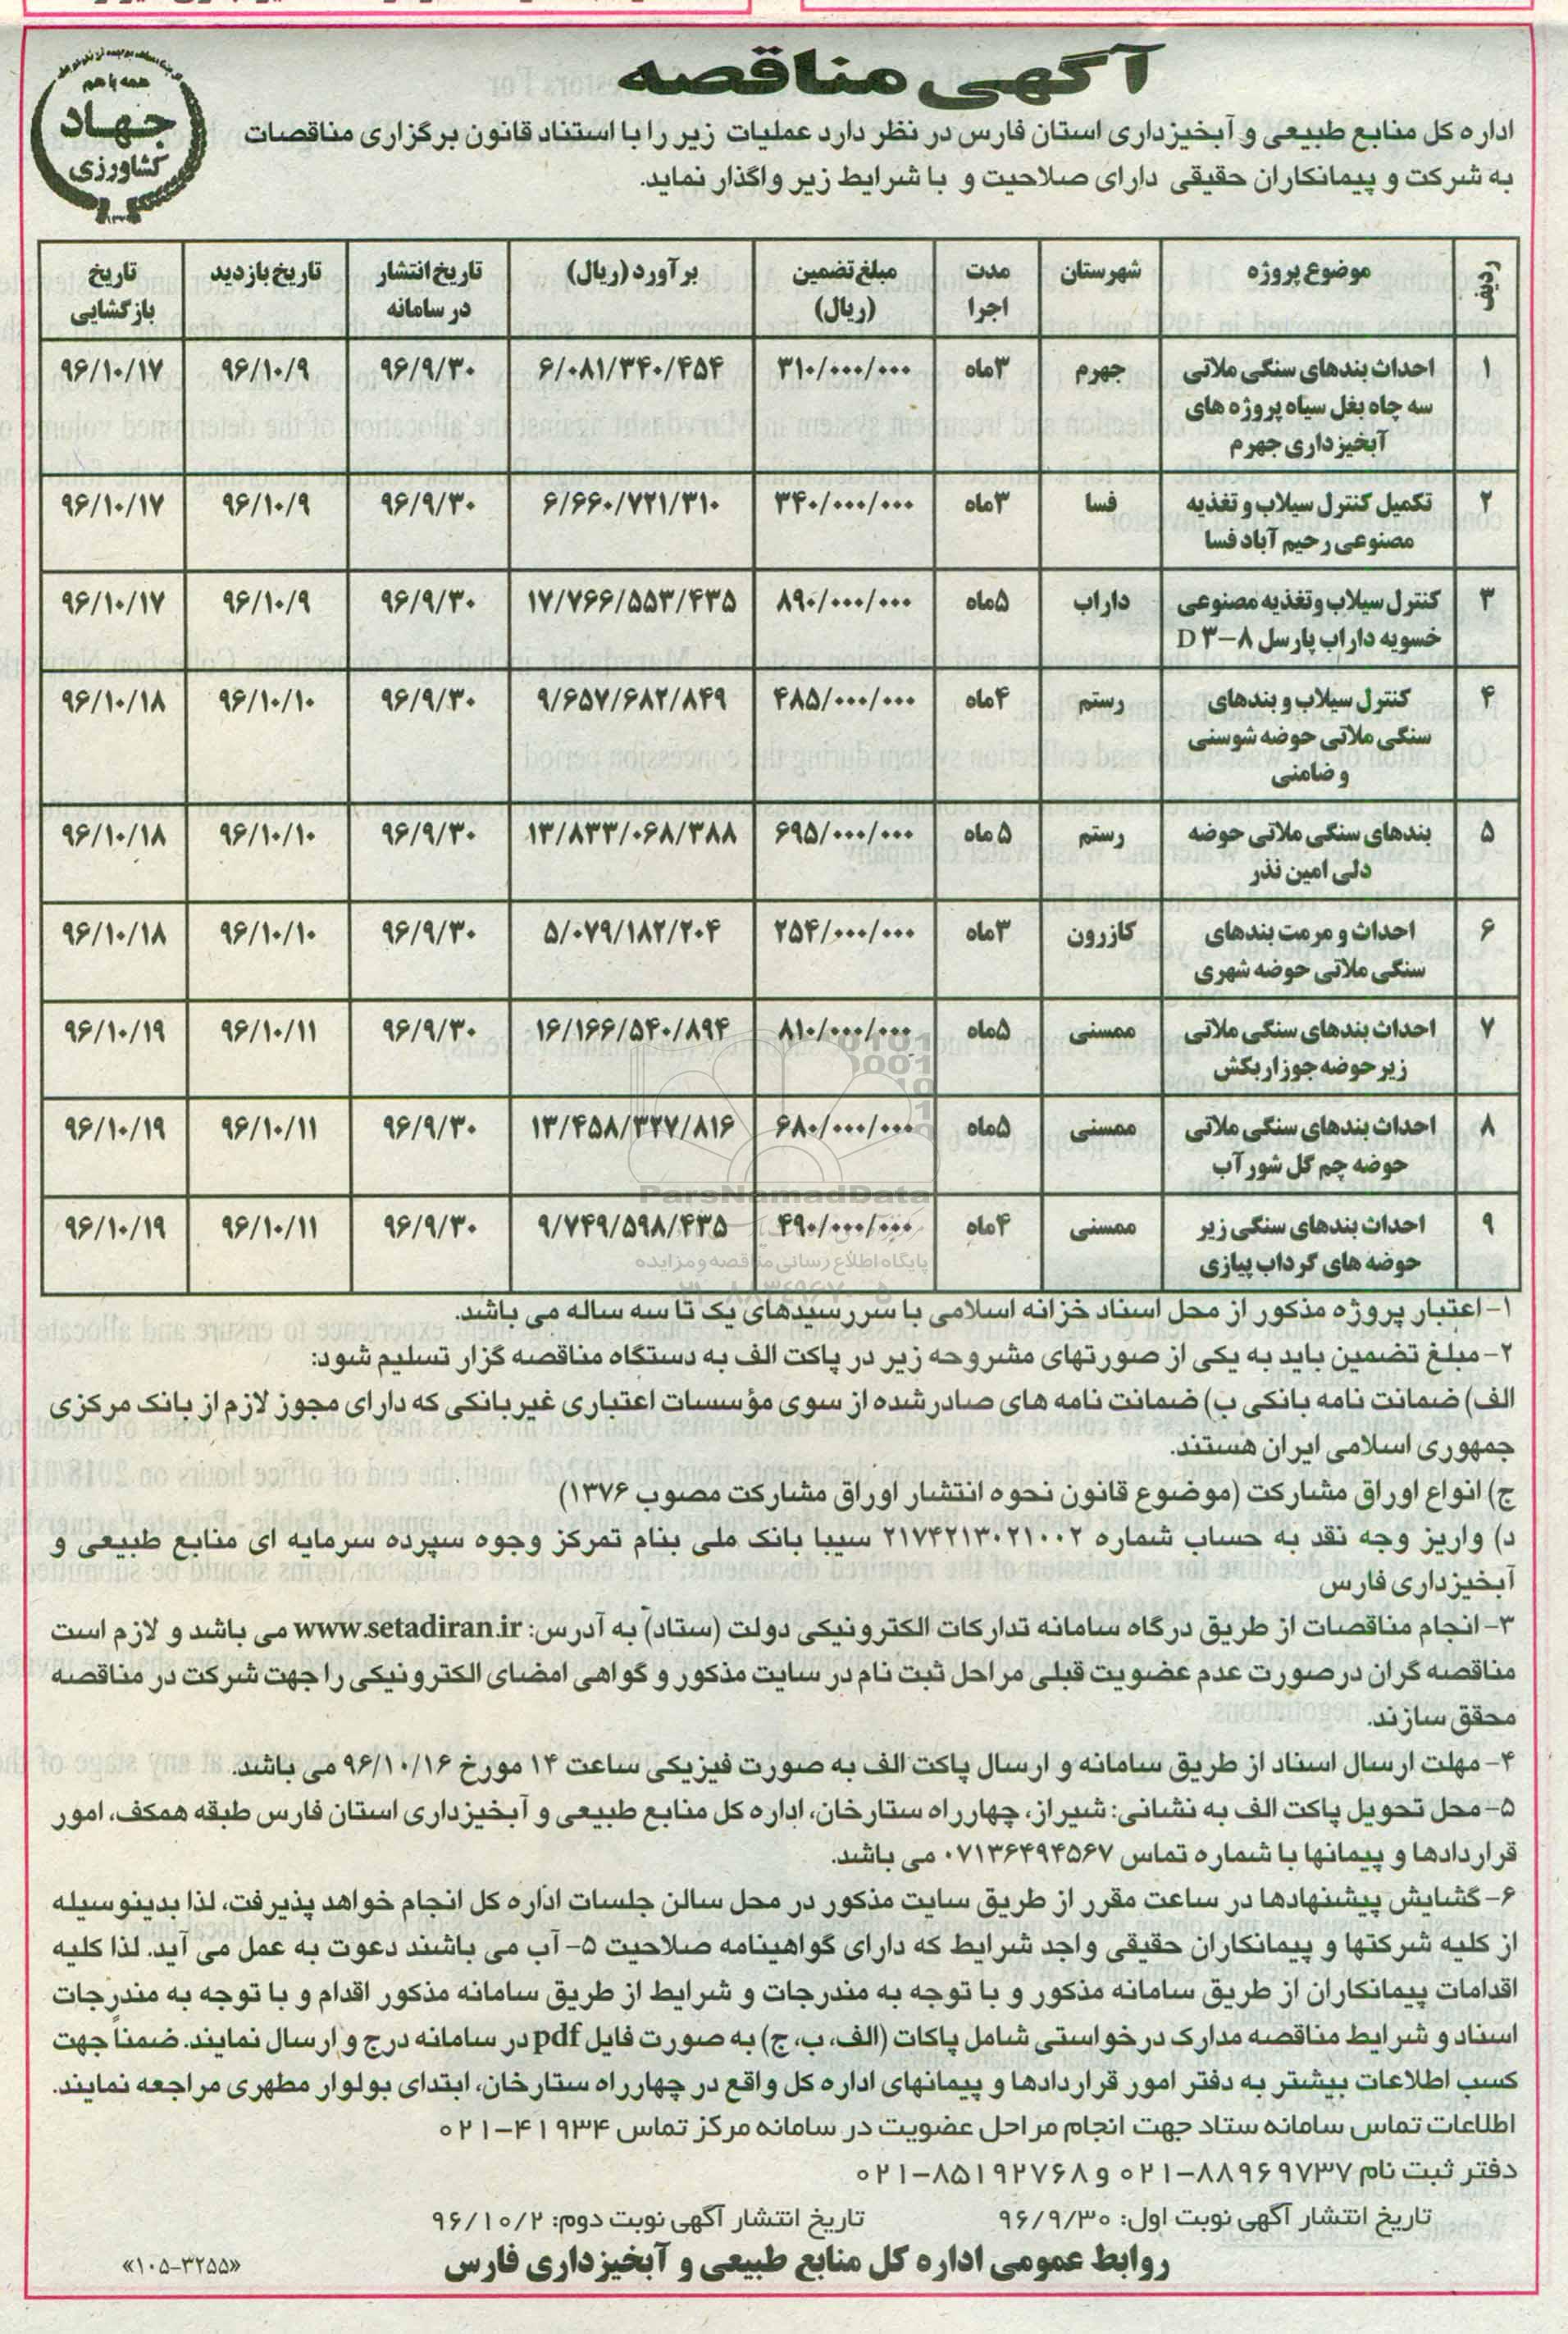 آگهی مناقصه
همه با هم
جهاد
کشاورزی
اداره کل منابع طبیعی و آبخیزداری استان فارس در نظر دارد عملیات زیر را با استناد قانون برگزاری مناقصات
به شرکت و پیمانکاران حقیقی دارای صلاحیت و با شرایط زیر واگذار نماید.
ردیف | موضوع پروژه | شهرستان | مدت اجرا | مبلغ تضمین (ریال) | برآورد (ریال) | تاریخ انتشار در سامانه | تاریخ بازدید | تاریخ بازگشایی
۱ | احداث بندهای سنگی ملاتی سه چاه بغل سیاه پروژه های آبخیزداری جهرم | جهرم | ۳ماه | ۳۱۰/۰۰۰/۰۰۰ | ۶/۰۸۱/۳۴۰/۴۵۴ | ۹۶/۹/۳۰ | ۹۶/۱۰/۹ | ۹۶/۱۰/۱۷
۲ | تکمیل کنترل سیلاب و تغذیه مصنوعی رحیم آباد فسا | فسا | ۳ماه | ۳۴۰/۰۰۰/۰۰۰ | ۶/۶۶۰/۷۲۱/۳۱۰ | ۹۶/۹/۳۰ | ۹۶/۱۰/۹ | ۹۶/۱۰/۱۷
۳ | کنترل سیلاب و تغذیه مصنوعی خسویه داراب پارسل ۸-D۳ | داراب | ۵ماه | ۸۹۰/۰۰۰/۰۰۰ | ۱۷/۷۶۶/۵۵۳/۴۳۵ | ۹۶/۹/۳۰ | ۹۶/۱۰/۹ | ۹۶/۱۰/۱۷
۴ | کنترل سیلاب و بندهای سنگی ملاتی حوضه شوسنی و ضامنی | رستم | ۴ماه | ۴۸۵/۰۰۰/۰۰۰ | ۹/۶۵۷/۶۸۲/۸۴۹ | ۹۶/۹/۳۰ | ۹۶/۱۰/۱۰ | ۹۶/۱۰/۱۸
۵ | بندهای سنگی ملاتی حوضه دلی امین نذر | رستم | ۵ ماه | ۶۹۵/۰۰۰/۰۰۰ | ۱۳/۸۳۳/۰۶۸/۳۸۸ | ۹۶/۹/۳۰ | ۹۶/۱۰/۱۰ | ۹۶/۱۰/۱۸
۶ | احداث و مرمت بندهای سنگی ملاتی حوضه شهری | کازرون | ۳ماه | ۲۵۴/۰۰۰/۰۰۰ | ۵/۰۷۹/۱۸۲/۲۰۴ | ۹۶/۹/۳۰ | ۹۶/۱۰/۱۰ | ۹۶/۱۰/۱۸
۷ | احداث بندهای سنگی ملاتی زیر حوضه جوزار بکش | ممسنی | ۵ماه | ۸۱۰/۰۰۰/۰۰۰ | ۱۶/۱۶۶/۵۴۰/۸۹۴ | ۹۶/۹/۳۰ | ۹۶/۱۰/۱۱ | ۹۶/۱۰/۱۹
۸ | احداث بندهای سنگی ملاتی حوضه چم گل شور آب | ممسنی | ۵ماه | ۶۸۰/۰۰۰/۰۰۰ | ۱۳/۴۵۸/۳۲۷/۸۱۶ | ۹۶/۹/۳۰ | ۹۶/۱۰/۱۱ | ۹۶/۱۰/۱۹
۹ | احداث بندهای سنگی زیر حوضه های گرداب پیازی | ممسنی | ۴ماه | ۴۹۰/۰۰۰/۰۰۰ | ۹/۷۴۹/۵۹۸/۴۳۵ | ۹۶/۹/۳۰ | ۹۶/۱۰/۱۱ | ۹۶/۱۰/۱۹
ParsNamadData
پایگاه اطلاع رسانی مناقصه و مزایده
۱- اعتبار پروژه مذکور از محل اسناد خزانه اسلامی با سررسیدهای یک تا سه ساله می باشد.
۲- مبلغ تضمین باید به یکی از صورتهای مشروحه زیر در پاکت الف به دستگاه مناقصه گزار تسلیم شود:
الف) ضمانت نامه بانکی ب) ضمانت نامه های صادرشده از سوی مؤسسات اعتباری غیربانکی که دارای مجوز لازم از بانک مرکزی
جمهوری اسلامی ایران هستند.
ج) انواع اوراق مشارکت (موضوع قانون نحوه انتشار اوراق مشارکت مصوب ۱۳۷۶)
د) واریز وجه نقد به حساب شماره ۲۱۷۴۲۱۳۰۲۱۰۰۲ سیبا بانک ملی بنام تمرکز وجوه سپرده سرمایه ای منابع طبیعی و
آبخیزداری فارس
۳- انجام مناقصات از طریق درگاه سامانه تدارکات الکترونیکی دولت (ستاد) به آدرس: www.setadiran.ir می باشد و لازم است
مناقصه گران درصورت عدم عضویت قبلی مراحل ثبت نام در سایت مذکور و گواهی امضای الکترونیکی را جهت شرکت در مناقصه
محقق سازند.
۴- مهلت ارسال اسناد از طریق سامانه و ارسال پاکت الف به صورت فیزیکی ساعت ۱۴ مورخ ۹۶/۱۰/۱۶ می باشد.
۵- محل تحویل پاکت الف به نشانی: شیراز، چهارراه ستارخان، اداره کل منابع طبیعی و آبخیزداری استان فارس طبقه همکف، امور
قراردادها و پیمانها با شماره تماس ۰۷۱۳۶۴۹۴۵۶۷ می باشد.
۶- گشایش پیشنهادها در ساعت مقرر از طریق سایت مذکور در محل سالن جلسات اداره کل انجام خواهد پذیرفت، لذا بدینوسیله
از کلیه شرکتها و پیمانکاران حقیقی واجد شرایط که دارای گواهینامه صلاحیت ۵- آب می باشند دعوت به عمل می آید. لذا کلیه
اقدامات پیمانکاران از طریق سامانه مذکور و با توجه به مندرجات و شرایط از طریق سامانه مذکور اقدام و با توجه به مندرجات
اسناد و شرایط مناقصه مدارک درخواستی شامل پاکات (الف، ب، ج) به صورت فایل pdf در سامانه درج و ارسال نمایند. ضمناً جهت
کسب اطلاعات بیشتر به دفتر امور قراردادها و پیمانهای اداره کل واقع در چهارراه ستارخان، ابتدای بولوار مطهری مراجعه نمایند.
اطلاعات تماس سامانه ستاد جهت انجام مراحل عضویت در سامانه مرکز تماس ۴۱۹۳۴-۰۲۱
دفتر ثبت نام ۸۸۹۶۹۷۳۷-۰۲۱ و ۸۵۱۹۲۷۶۸-۰۲۱
تاریخ انتشار آگهی نوبت اول: ۹۶/۹/۳۰ تاریخ انتشار آگهی نوبت دوم: ۹۶/۱۰/۲
روابط عمومی اداره کل منابع طبیعی و آبخیزداری فارس
«۱۰۵-۳۲۵۵»